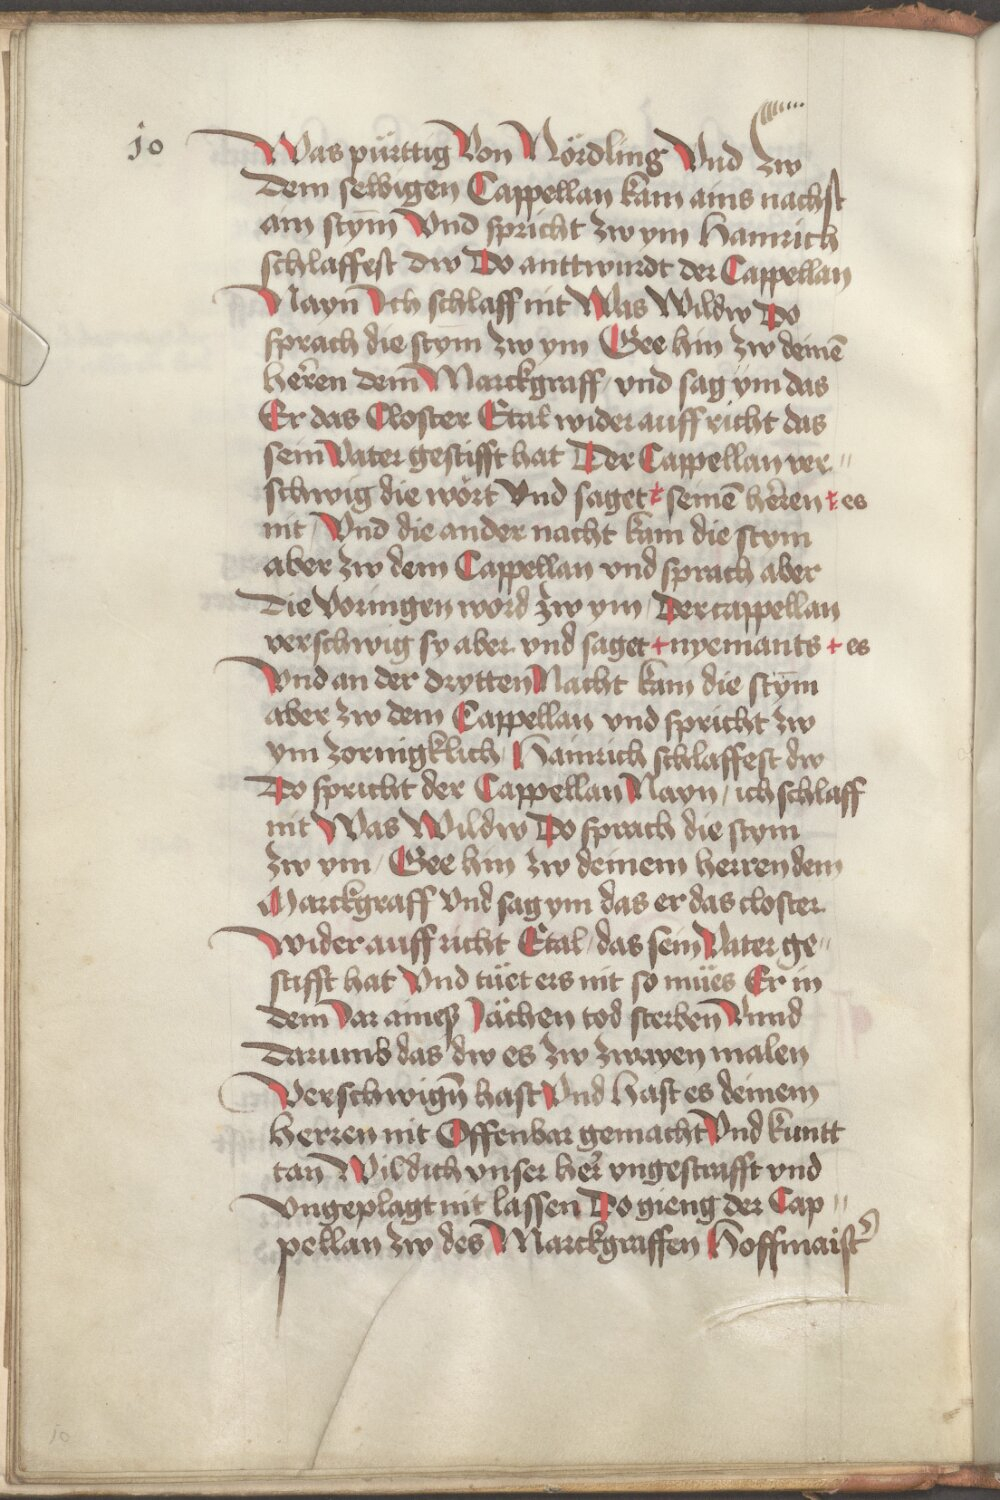 10
Was pürttig Von Nördling Vnd zw
Dem selbigen Cappellan kam ains nachst
am stym̄ Vnd spricht zw ym Hainrich
schlaffest dw Do anttwurdt der Cappellan
Nayn Ich schlaff nit Was Wildw Do
sprach die stym̄ zw ym Gee hin zw deinē
herren dem Marckgraff / vnd sag ym das
Er das Closter Etal wider auff richt das
sein Vater gestifft hat Der Cappellan ver⸗
schwig die wort Vnd saget + seinē herren + es
nit / Vnd die ander nacht kam die stym
aber zw dem Cappellan vnd sprach aber
Die Voringen word zw ym / Der cappellan
verschwig sy aber vnd saget + nyemants + es
Vnd an der drytten Nacht kam die stym̄
aber zw dem Cappellan vnd spricht zw
ym zornigklich Hainrich schlaffest dw
Do spricht der Cappellan Nayn / ich schlaff
nit Was Wildw Do sprach die stym
zw ym / Gee hin zw deinem herren dem
Marckgraff Vnd sag ym das er das closter
Wider auff richt Etal / das sein Vater ge⸗
stifft hat Vnd tüet ers nit so mües Er in
dem Jar aines Jächen tod sterben Vnnd
Darumb das dw es zw zwayen malen
Verschwign̄ hast Vnd hast es deinem
herren nit Offenbar gemacht Vnd kuntt
tan Wil dich vnser her vngestrafft vnd
Vngeplagt nit lassen Do gieng der Cap⸗
pellan zw des Marckgraffen Hoffmaist̾
10